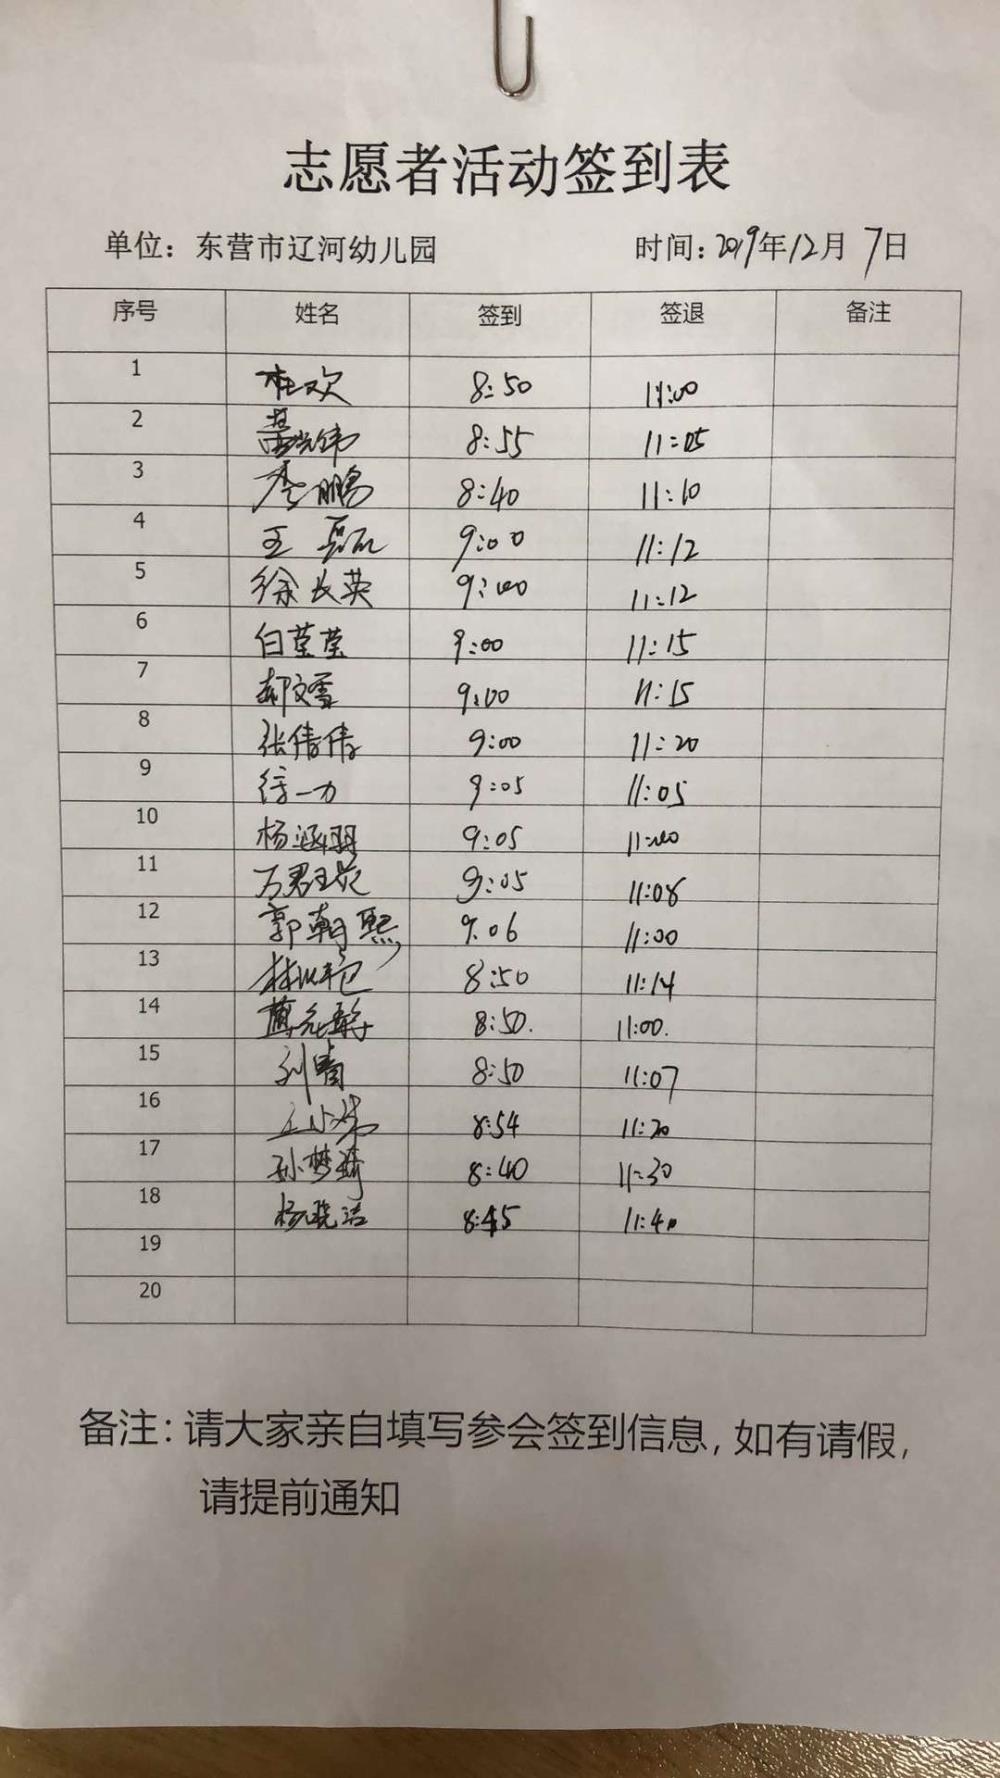 志愿者活动签到表
单位：东营市辽河幼儿园 时间：2019年12月7日
序号 姓名 签到 签退 备注
1 杜欢 8:50 11:00
2 8:55 11:05
3 李鹏 8:40 11:10
4 王磊 9:00 11:12
5 徐长英 9:00 11:12
6 白莹莹 9:00 11:15
7 郝文雪 9:00 11:15
8 张倩倩 9:00 11:20
9 徐一力 9:05 11:05
10 杨涵羽 9:05 11:00
11 万君 9:05 11:08
12 郭朝熙 9:06 11:00
13 8:50 11:14
14 8:50. 11:00.
15 刘青 8:50 11:07
16 8:54 11:20
17 孙梦琦 8:40 11:30
18 杨晓洁 8:45 11:40
19
20
备注：请大家亲自填写参会签到信息，如有请假，
请提前通知